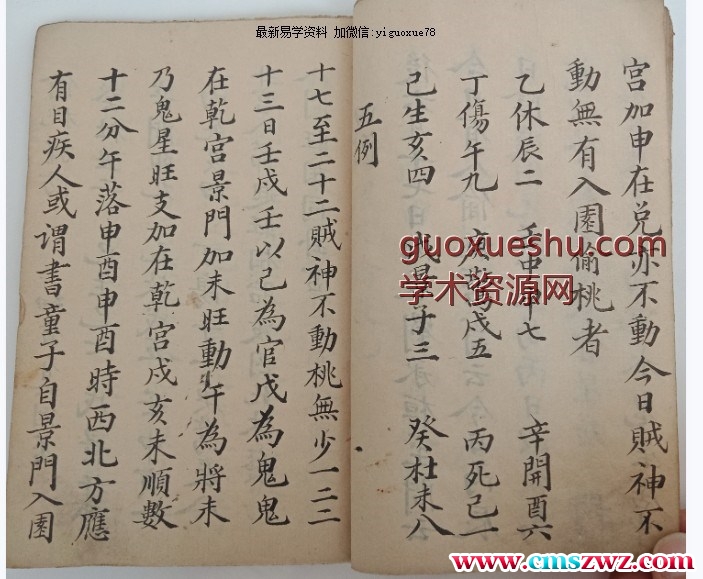 最新易学资料 加微信:yiguoxue78
宫加申在兑亦不動今日賊神不
動無有入園偷桃者
乙休辰二 壬 申 七 辛開酉六
丁傷午九 庚 戌五 丙死己一
己生亥四 景子三 癸杜未八
五例
十七至二十二賊神不動桃無少一二三
十三日壬戌壬以己為官戊為鬼鬼
在乾宫景門加未旺動午為將未
乃鬼星旺支加在乾宫戌亥未順數
十二分午落申酉申酉時西北方應
有目疾人或谓書童子自景門入園
guoxueshu.com
学术资源网
www.cmszwz.com